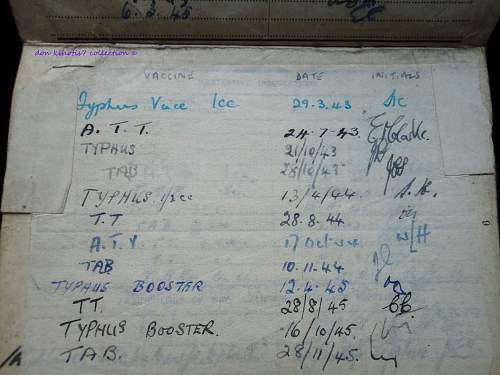 6.3.45
don kihotis7 collection ©
VACCINE DATE INITIALS
Typhus Vacc 1cc 29.3.43. AC
A.T.T. 24.7.43.
TYPHUS 21/10/43
TAB 28/10/43
TYPHUS 1/2cc 13/4/44.
T.T 28.8.44.
A.T.V 17 Oct 44 WLH
TAB 10.11.44
TYPHUS BOOSTER 12.4.45
TT. 28/8/45
TYPHUS BOOSTER. 16/10/45.
TAB. 28/11/45.